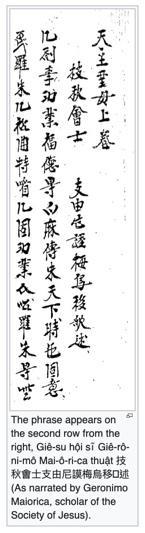 天主聖母上卷
技秋會士 支由尼謨梅烏移述
几事功業福德麻傳朱天下固意
羅朱几特几固功業羅朱
The phrase appears on
the second row from the
right, Giê-su hội sĩ Giê-rô-
ni-mô Mai-ô-ri-ca thuật 技
秋會士支由尼謨梅烏移口述
(As narrated by Geronimo
Maiorica, scholar of the
Society of Jesus).